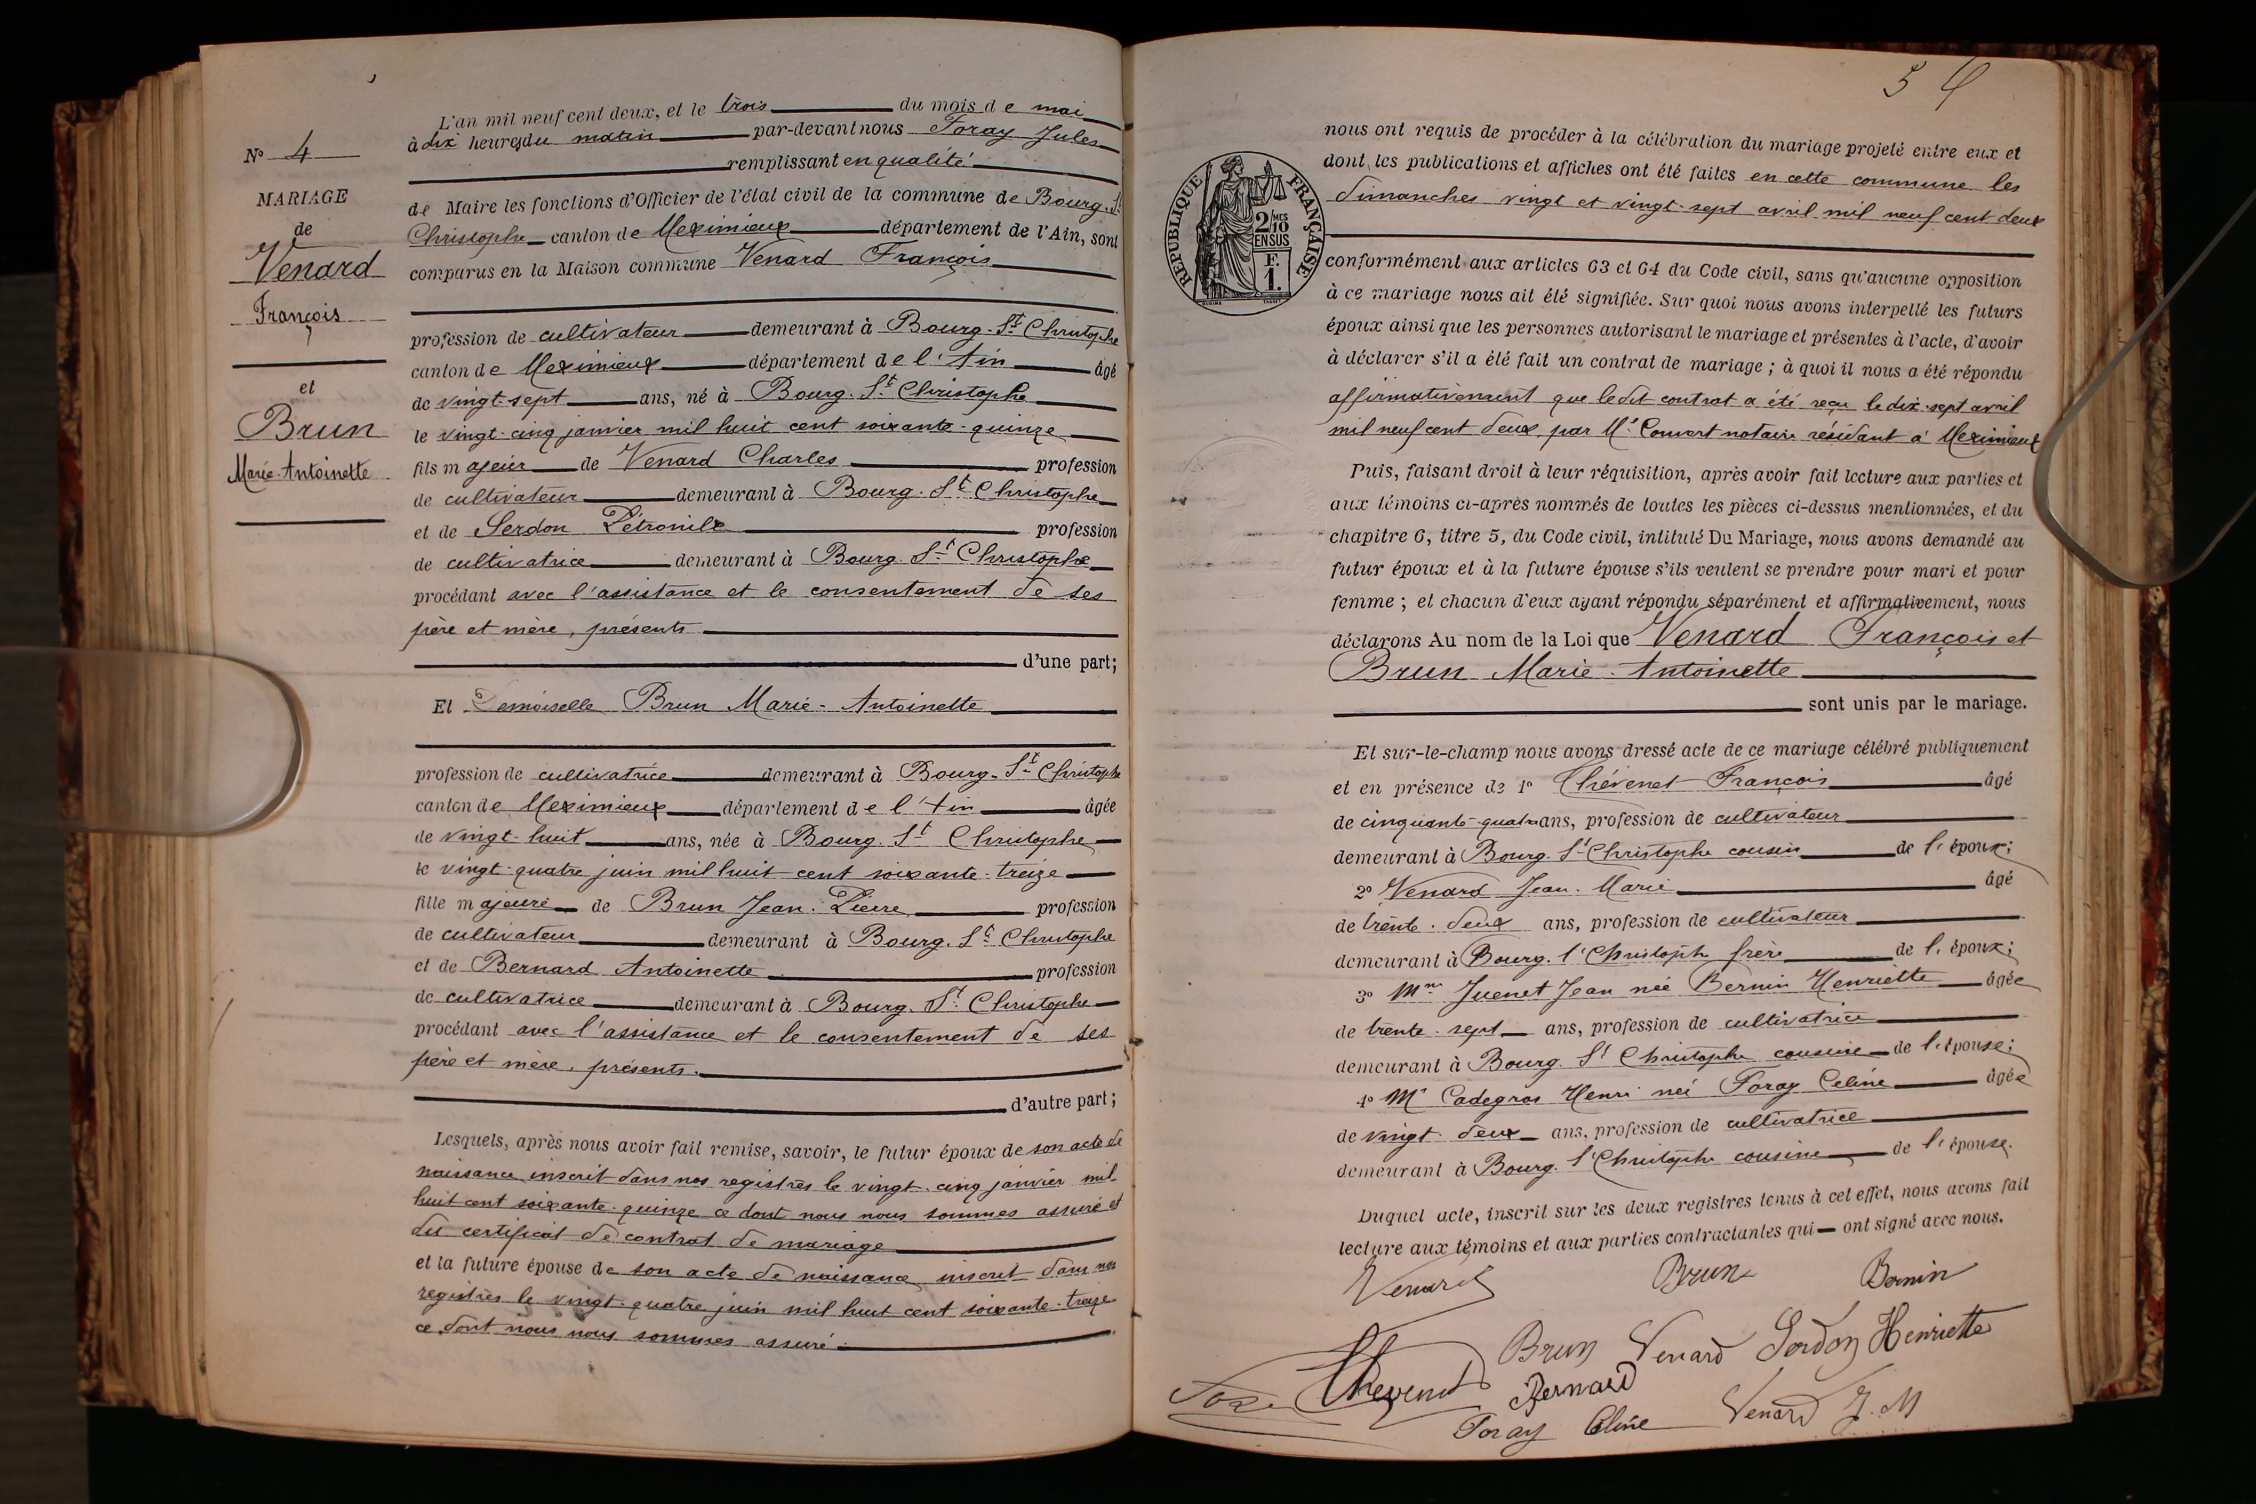 N° 4
MARIAGE
de
Venard
François
et
Brun
Marie-Antoinette
L'an mil neuf cent deux, et le trois du mois de mai
à dix heures du matin par-devant nous Foray Jules
remplissant en qualité
de Maire les fonctions d'Officier de l'état civil de la commune de Bourg-St
Christophe canton de Meximieux département de l'Ain, sont
comparus en la Maison commune Venard François
profession de cultivateur demeurant à Bourg-St Christophe
canton de Meximieux département de l'Ain âgé
de vingt-sept ans, né à Bourg-St Christophe
le vingt-cinq janvier mil huit cent soixante-quinze
fils majeur de Venard Charles profession
de cultivateur demeurant à Bourg-St Christophe
et de Serdon Pétronille profession
de cultivatrice demeurant à Bourg-St Christophe
procédant avec l'assistance et le consentement de ses
père et mère, présents
d'une part;
Et Demoiselle Brun Marie-Antoinette
profession de cultivatrice demeurant à Bourg-St Christophe
canton de Meximieux département de l'Ain âgée
de vingt-huit ans, née à Bourg-St Christophe
le vingt-quatre juin mil huit cent soixante-treize
fille majeure de Brun Jean-Pierre profession
de cultivateur demeurant à Bourg-St Christophe
et de Bernard Antoinette profession
de cultivatrice demeurant à Bourg-St Christophe
procédant avec l'assistance et le consentement de ses
père et mère, présents.
d'autre part;
Lesquels, après nous avoir fait remise, savoir, le futur époux de son acte de
naissance inscrit dans nos registres le vingt-cinq janvier mil
huit cent soixante-quinze ce dont nous nous sommes assuré et
du certificat de contrat de mariage
et la future épouse de son acte de naissance inscrit dans nos
registres le vingt-quatre juin mil huit cent soixante-treize
ce dont nous nous sommes assuré.
54
RÉPUBLIQUE FRANÇAISE
2 MES
10
EN SUS
F.
1.
nous ont requis de procéder à la célébration du mariage projeté entre eux et
dont les publications et affiches ont été faites en cette commune les
dimanches vingt et vingt-sept avril mil neuf cent deux
conformément aux articles 63 et 64 du Code civil, sans qu'aucune opposition
à ce mariage nous ait été signifiée. Sur quoi nous avons interpellé les futurs
époux ainsi que les personnes autorisant le mariage et présentes à l'acte, d'avoir
à déclarer s'il a été fait un contrat de mariage; à quoi il nous a été répondu
affirmativement que ledit contrat a été reçu le dix-sept avril
mil neuf cent deux par Me Convert notaire résidant à Meximieux
Puis, faisant droit à leur réquisition, après avoir fait lecture aux parties et
aux témoins ci-après nommés de toutes les pièces ci-dessus mentionnées, et du
chapitre 6, titre 5, du Code civil, intitulé Du Mariage, nous avons demandé au
futur époux et à la future épouse s'ils veulent se prendre pour mari et pour
femme; et chacun d'eux ayant répondu séparément et affirmativement, nous
déclarons Au nom de la Loi que Venard François et
Brun Marie-Antoinette
sont unis par le mariage.
Et sur-le-champ nous avons dressé acte de ce mariage célébré publiquement
et en présence de 1° Thévenet François âgé
de cinquante-quatre ans, profession de cultivateur
demeurant à Bourg-St Christophe cousin de l'époux;
2° Venard Jean-Marie âgé
de trente-deux ans, profession de cultivateur
demeurant à Bourg-St Christophe frère de l'époux;
3° Mme Juenet Jean née Bernin Henriette âgée
de trente-sept ans, profession de cultivatrice
demeurant à Bourg-St Christophe cousine de l'épouse;
4° Me Cadegros Henri née Foray Céline âgée
de vingt-deux ans, profession de cultivatrice
demeurant à Bourg-St Christophe cousine de l'épouse.
Duquel acte, inscrit sur les deux registres tenus à cet effet, nous avons fait
lecture aux témoins et aux parties contractantes qui ont signé avec nous.
Venard Brun Bernin
Brun Venard Serdon Henriette
Thevenet Bernard
Foray Céline Venard J. M